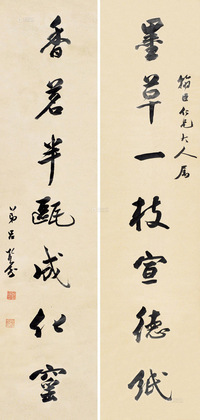 翰臣仁兄大人属
墨草一枝宣德纸
香茗半瓯成化窑
弟吕